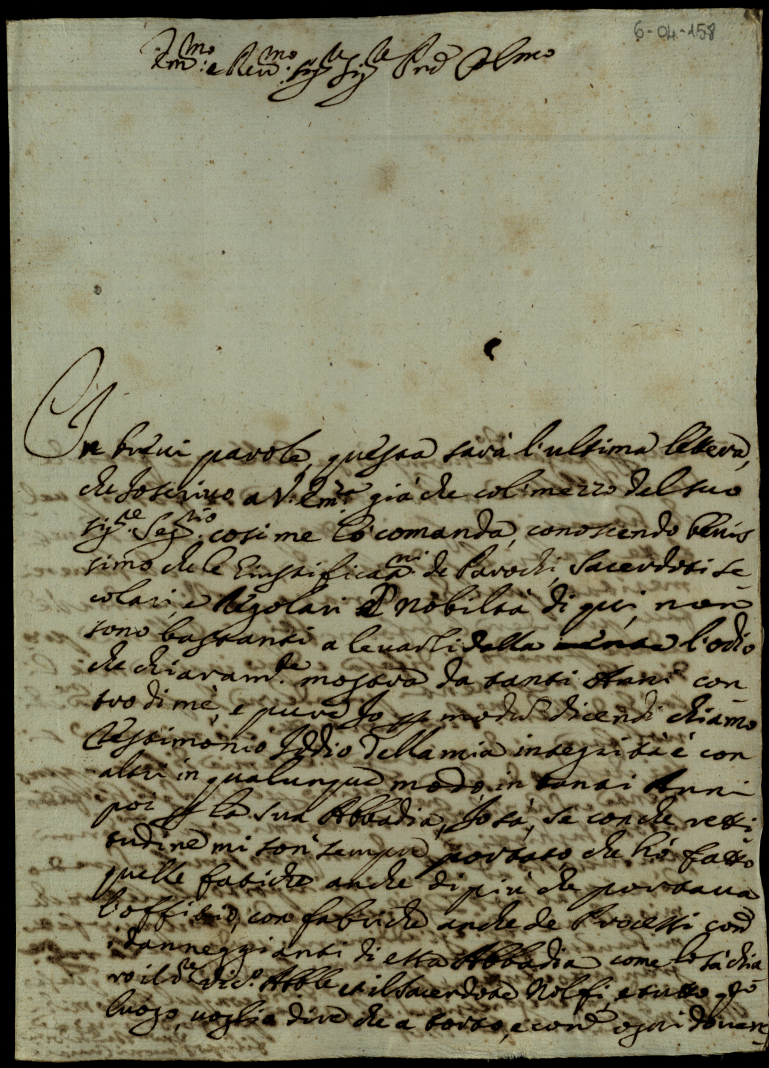 6-04-158
Em.mo e Rev.mo Sig.re Sig.re Pnē Col.mo
In brevi parole, questa sarà l'ultima lettera,
che Io scrivo a V. Em.za già che col mezzo del suo
Sig.re Seg.rio così me lo comanda, conoscendo benis
simo che le Giustificaz.ni de Parochi, Sacerdoti se
colari, e Regolari e Nobiltà di qui, non
sono bastanti a levarli della l'odio
che chiaram.te mostra da tanti Anni con
tro di mè, e pure Io p modũ dicendi chiamo
testimonio Iddio della mia integrità e con
altri in qualunque modo, in tanti Anni
poi p la sua Abbadia, Io sà, se con che retti
tudine mi son sempre portato che hò fatto
quelle fatiche anche di più che portava
l'offitio, con fabriche anche de Processi con
i danneggianti di essa Abbadia come lo sà chia
ro il Vic.o Abble et il Sacerdote Nolfi, e tutto q.to
luogo, voglio dire che a torto, e con ogni dovere